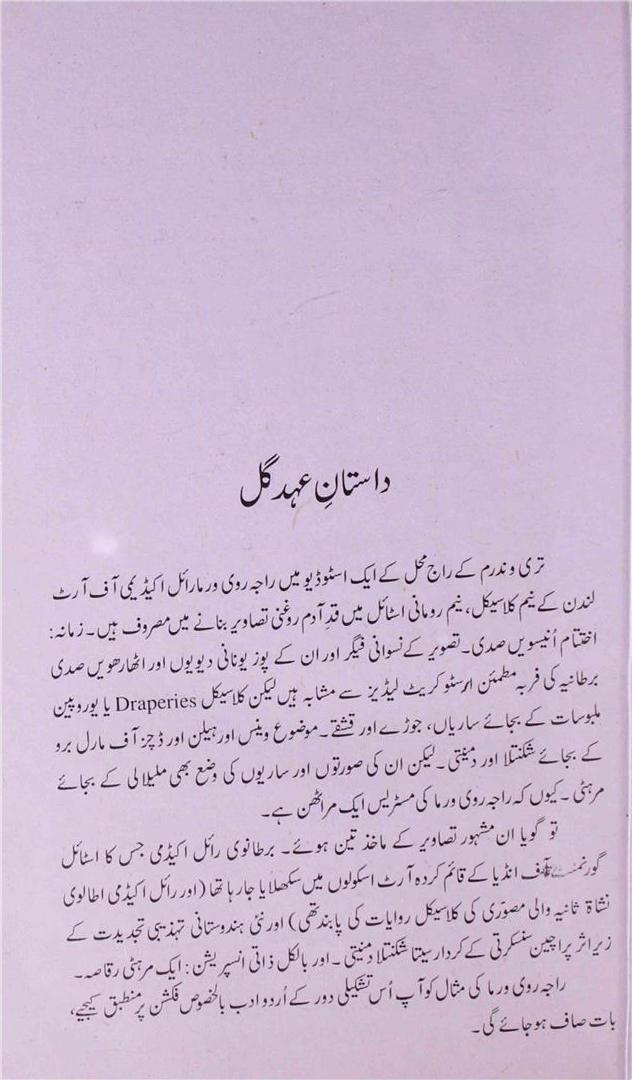 داستانِ عہدِ گل
تری وندرم کے راج محل کے ایک اسٹوڈیو میں راجہ روی ورما رائل اکیڈیمی آف آرٹ
لندن کے نیم کلاسیکل، نیم رومانی اسٹائل میں قدِ آدم روغنی تصاویر بنانے میں مصروف ہیں۔ زمانہ:
اختتام اُنیسویں صدی۔ تصویر کے نسوانی فیگر اور ان کے پوز یونانی دیویوں اور اٹھارھویں صدی
برطانیہ کی فربہ مطمئن ارسٹو کریٹ لیڈیز سے مشابہ ہیں لیکن کلاسیکل Draperies یا یوروپین
ملبوسات کے بجائے ساریاں، جوڑے اور قشقے۔ موضوع وینس اور ہیلن اور ڈچز آف مارل برو
کے بجائے شکنتلا اور دمنیتی۔ لیکن ان کی صورتوں اور ساریوں کی وضع بھی ملیالی کے بجائے
مرہٹی۔ کیوں کہ راجہ روی ورما کی مسٹریس ایک مراٹھن ہے۔
تو گویا ان مشہور تصاویر کے ماخذ تین ہوئے۔ برطانوی رائل اکیڈمی جس کا اسٹائل
گورنمنٹ آف انڈیا کے قائم کردہ آرٹ اسکولوں میں سکھلایا جا رہا تھا (اور رائل اکیڈمی اطالوی
نشاۃ ثانیہ والی مصوّری کی کلاسیکل روایات کی پابند تھی) اور نئی ہندوستانی تہذیبی تجدیدت کے
زیرِ اثر پراچین سنسکرتی کے کردار سیتا شکنتلا دمنیتی۔ اور بالکل ذاتی انسپریشن: ایک مرہٹی رقاصہ۔
راجہ روی ورما کی مثال کو آپ اُس تشکیلی دور کے اُردو ادب بالخصوص فکشن پر منطبق کیجیے،
بات صاف ہو جائے گی۔